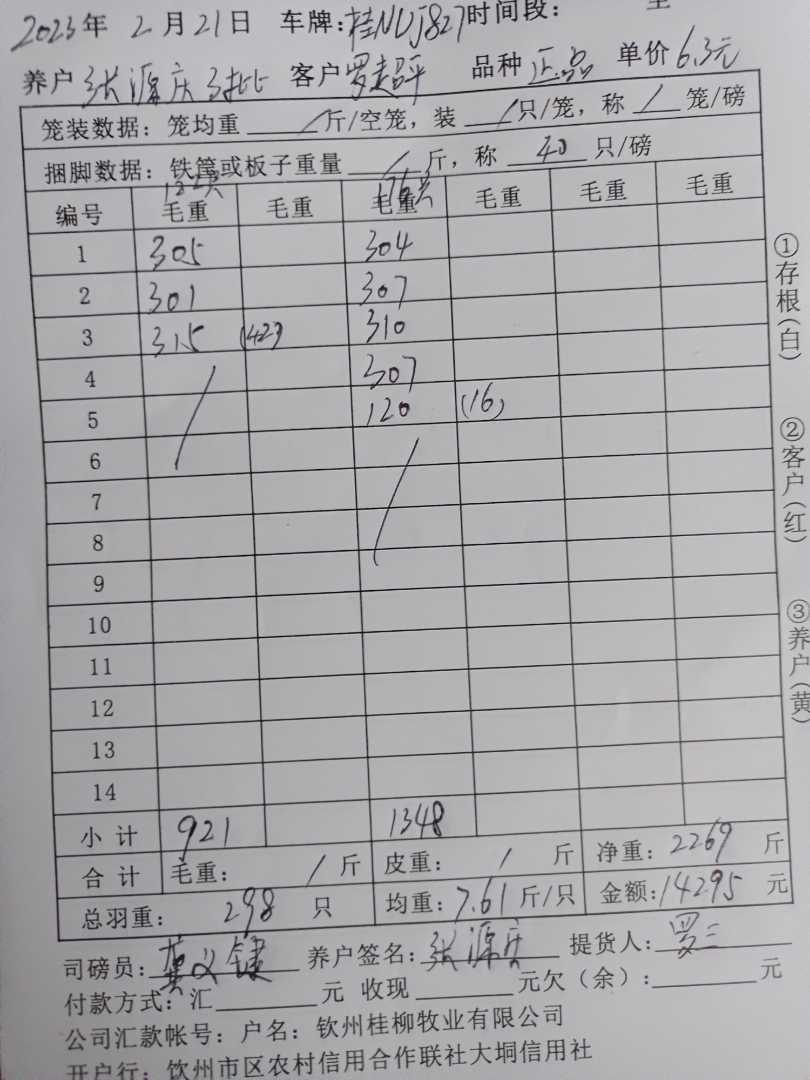 2023年 2月21日 车牌:桂NUJ827 时间段: 至
养户 张源庆3批 客户 罗超平 品种 正品 单价 6.3元
笼装数据: 笼均重 / 斤/空笼, 装 / 只/笼, 称 / 笼/磅
捆脚数据: 铁筐或板子重量 / 斤, 称 40 只/磅
122只 176只
编号 毛重 毛重 毛重 毛重 毛重 毛重
1 305 304
2 301 307
3 315 (42) 310
4 / 307
5 120 (16)
6 /
7
8
9
10
11
12
13
14
小计 921 1348
合计 毛重: / 斤 皮重: / 斤 净重: 2269 斤
总羽重: 298 只 均重: 7.61 斤/只 金额: 14295 元
司磅员: 龚义键 养户签名: 张源庆 提货人: 罗三
付款方式: 汇 元 收现 元欠(余): 元
公司汇款帐号: 户名: 钦州桂柳牧业有限公司
开户行: 钦州市区农村信用合作联社大垌信用社
①存根(白)
②客户(红)
③养户(黄)